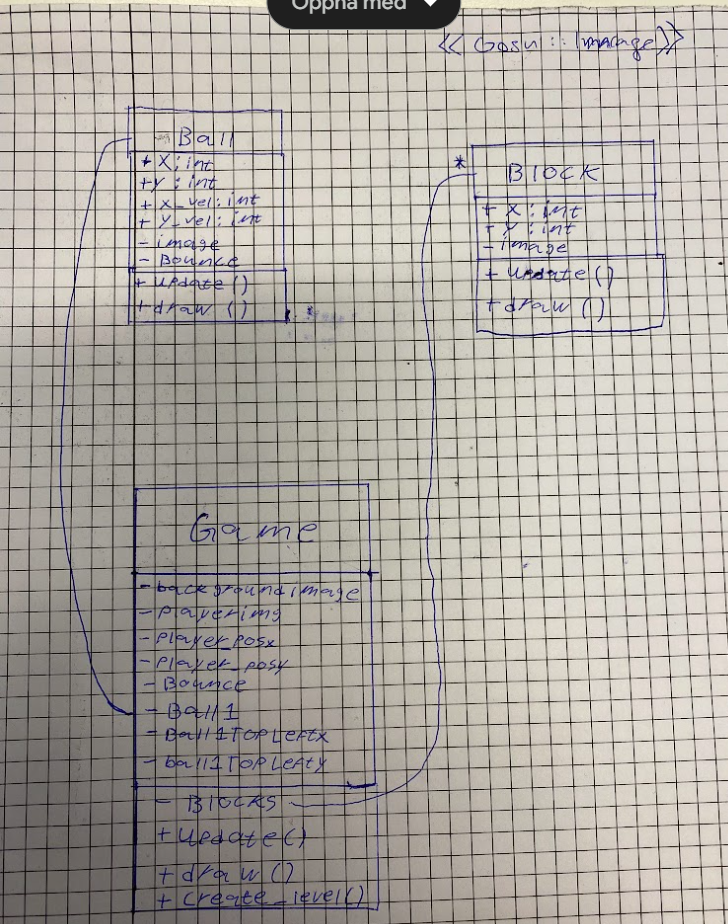 Öppna med
<< Gosu :: Image >>
Ball
+ X : int
+ y : int
+ x_vel : int
+ y_vel : int
- image
- Bounce
+ update ()
+ draw ()
*
Block
+ X : int
+ Y : int
- image
+ update ()
+ draw ()
Game
- background image
- Playerimg
- Player_posx
- Player_posy
- Bounce
- Ball 1
- Ball1TopLeftx
- ball1TopLefty
- Blocks
+ update ()
+ draw ()
+ create_level()